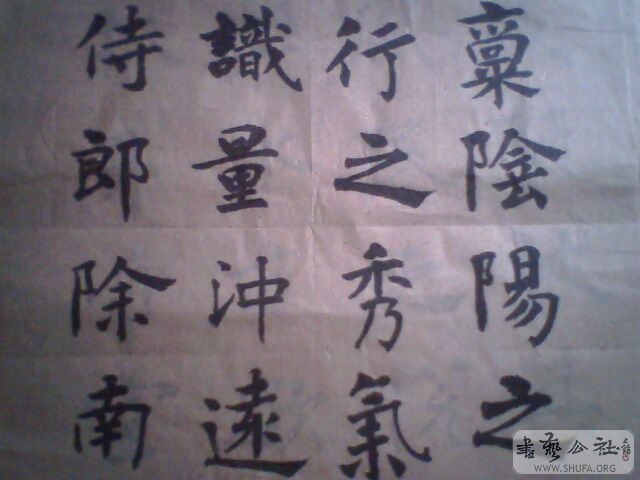 稟陰陽之
行之秀氣
識量沖遠
侍郎除南
書藝公社
WWW.SHUFA.ORG